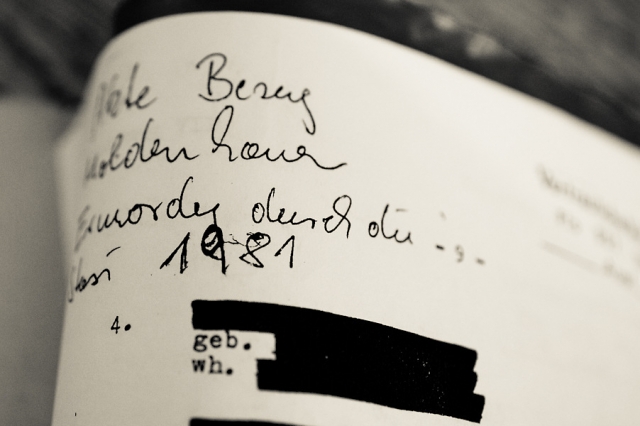 Akte Bezug
Moldenhauer
Ermordung durch die
Stasi 1981
- 9 -
4.
geb.
wh.